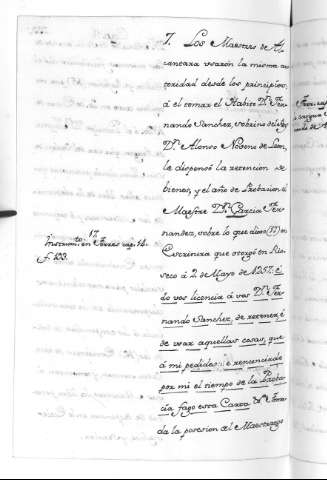 7. Los Maestres de Al-
cantara usaròn la misma au
toridad desde los principios,
à el tomar el Habito Dn. Fer-
nando Sanchez, sobrino del Rey
Dn. Alonso Nobeno de Leon,
le dispensò la retencion de
bienes, y el año de Probacion el
Maestre Dn. Garcia Fer-
nandez, sobre lo que dice (17) en
Escritura que otorgò en Rio
seco à 2 de Mayo de 1257. è
do vos licencia à vos Dn. Fer-
nando Sanchez, de retener, è
de usar aquellas cosas, que
à mi pedides è renunciarde
por mi el tiempo de la Proba-
cia fago esta Carta
da la posesion el Maestrazgo
17.
Instrumto. en Torres cap. 14.
f. 133.